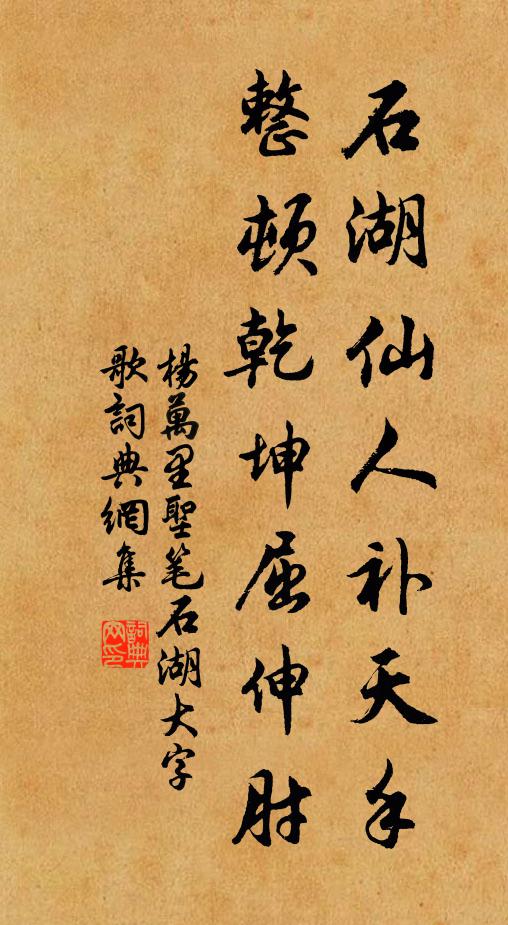 石湖仙人补天手
整顿乾坤屈伸肘
楊萬里聖笔石湖大字
歌詞典網集
詞典網印